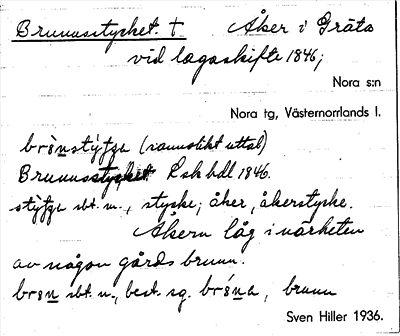 Brunnsstycket. † Åker i Gräta
vid lagaskifte 1846;
Nora s:n
Nora tg, Västernorrlands l.
(sannolikt uttal)
Brunnsstycket L sk hdl 1846.
sbt. n., stycke; åker, åkerstycke.
Åkern låg i närheten
av någon gårds brunn.
sbt. n., best. sg. brunn
Sven Hiller 1936.